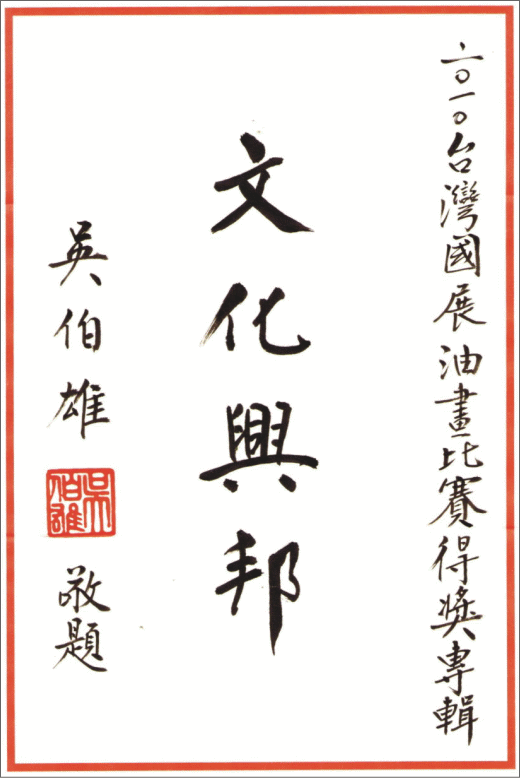 二〇一〇台灣國展油畫比賽得獎專輯
文化興邦
吳伯雄
吳伯雄
敬題